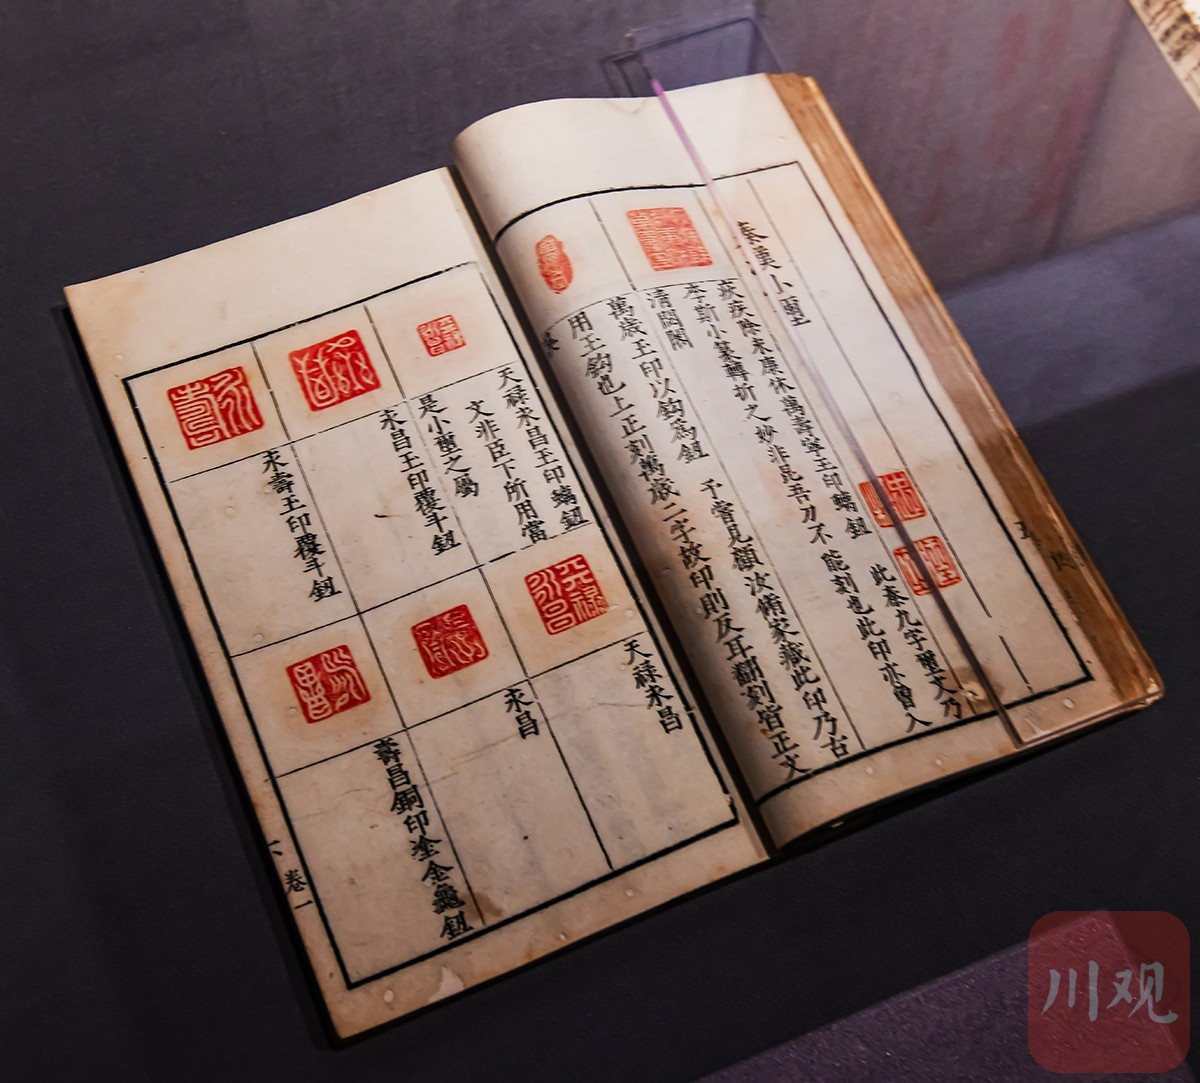 秦漢小璽
疢疾除永康休萬壽寧玉印螭鈕 此秦九字璽文乃
李斯小篆轉折之妙非昆吾刀不能刻也此印亦曾入
清閟閣
萬歲玉印以鈎為鈕 予嘗見顧汝脩家藏此印乃古
用玉鈎也上正刻萬歲二字故印則反耳翻刻皆正文
天祿永昌玉印螭鈕
文非臣下所用當
是小璽之屬
永昌玉印覆斗鈕
永壽玉印覆斗鈕
天祿永昌
永昌
壽昌銅印塗金龜鈕
卷一
川观